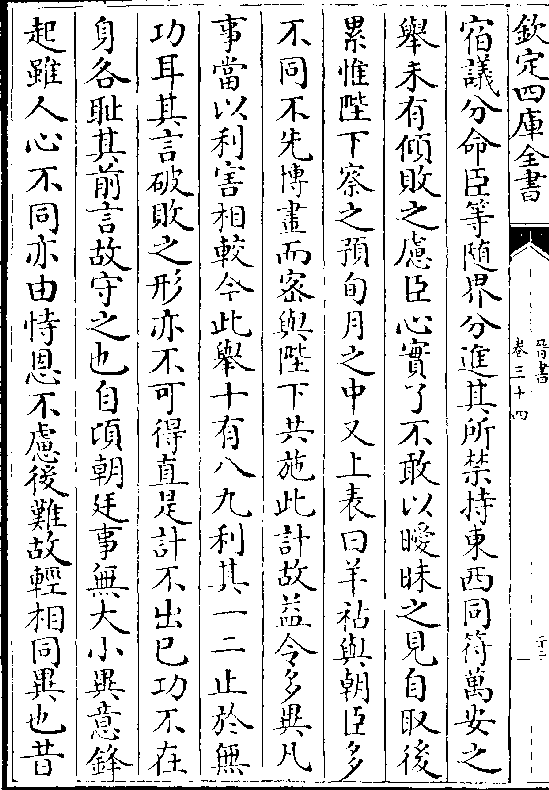 欽定四庫全書
晉書
卷三十四
宿議分命臣等随界分進其所禁持東西同符萬安之
舉未有傾敗之慮臣心實了不敢以曖昧之見自取後
累惟陛下察之預旬月之中又上表曰羊祜與朝臣多
不同不先博畫而密與陛下共施此計故益令多異凡
事當以利害相較今此舉十有八九利其一二止於無
功耳其言破敗之形亦不可得直是計不出已功不在
身各耻其前言故守之也自頃朝廷事無大小異意鋒
起雖人心不同亦由恃恩不慮後難故輕相同異也昔